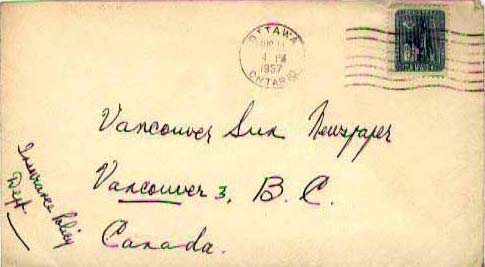 OTTAWA
4 PM
1957
ONTARIO
Vancouver Sun Newspaper
Vancouver 3, B.C.
Canada.
Insurance Policy
Dept.